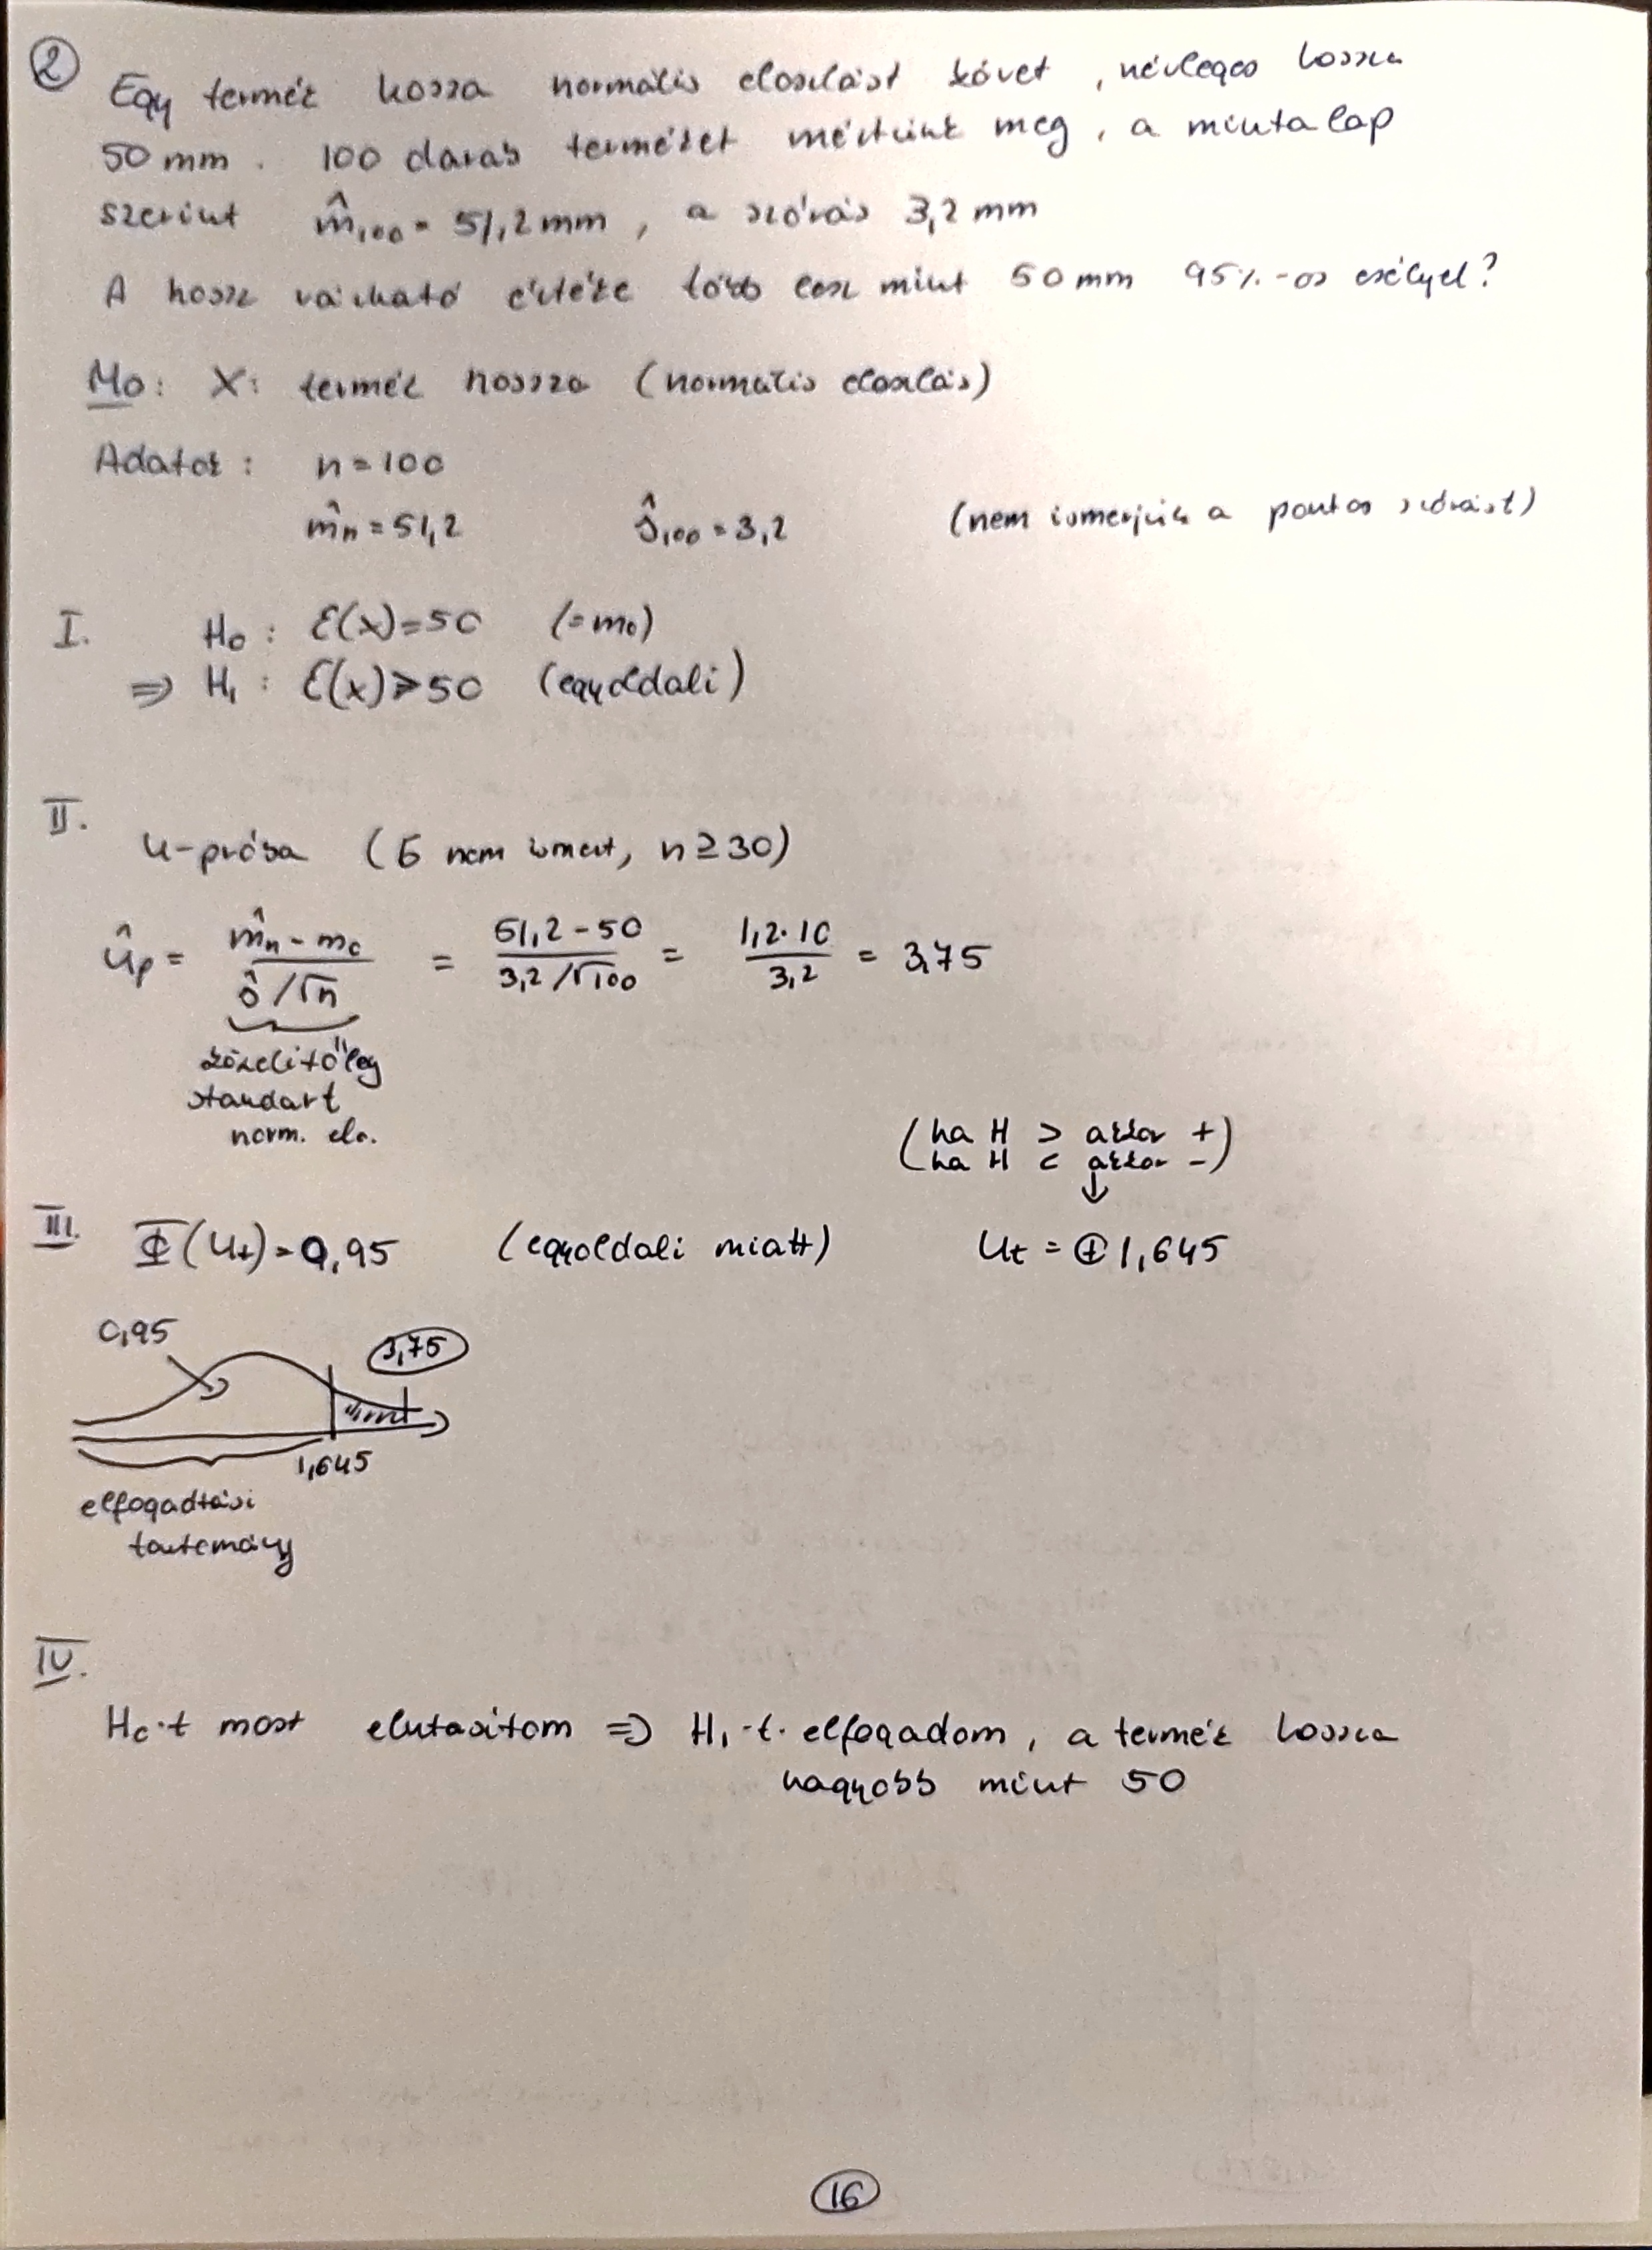 2
Egy termék hossza normális eloszlást követ, névleges hossza
50 mm. 100 darab terméket mértünk meg, a minta lap
szerint m̂₁₀₀ = 51,2 mm, a szórás 3,2 mm
A hossz várható értéke több lesz mint 50 mm 95%-os eséllyel?
Mo: X: termék hossza (normális eloszlás)
Adatok: n = 100
m̂ₙ = 51,2 ŝ₁₀₀ = 3,2 (nem ismerjük a pontos szórást)
I. H₀: E(x) = 50 (= m₀)
⇒ H₁: E(x) > 50 (egyoldali)
II.
u-próba (б nem ismert, n ≥ 30)
ûₚ = (m̂ₙ - m₀) / (σ̂/√n) = (51,2 - 50) / (3,2/√100) = (1,2·10) / 3,2 = 3,75
közelítőleg
standart
norm. elo.
(ha H > akkor +)
(ha H < akkor -)
↓
III. Φ(uₜ) = 0,95 (egyoldali miatt) uₜ = ⊕1,645
0,95 3,75
1,645
elfogadtási
tartomány
IV.
H₀-t most elutasítom ⇒ H₁-t elfogadom, a termék hossza
nagyobb mint 50
16